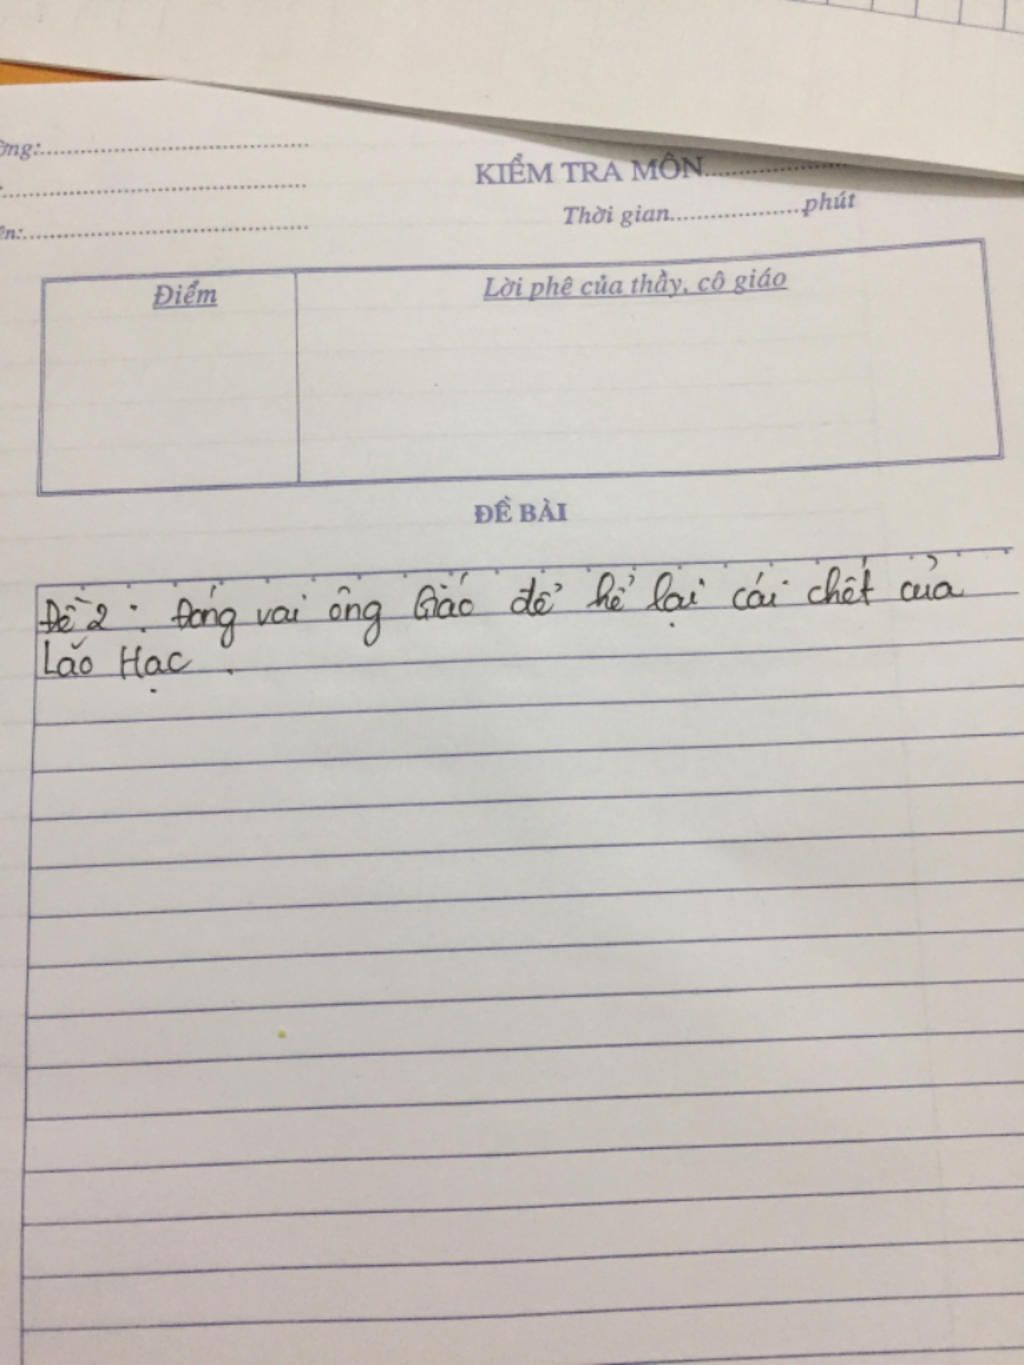 ờng:
KIỂM TRA MÔN
Thời gian phút
ên:
Điểm
Lời phê của thầy, cô giáo
ĐỀ BÀI
Đề 2 : Đóng vai ông Giáo để kể lại cái chết của
Lão Hạc .